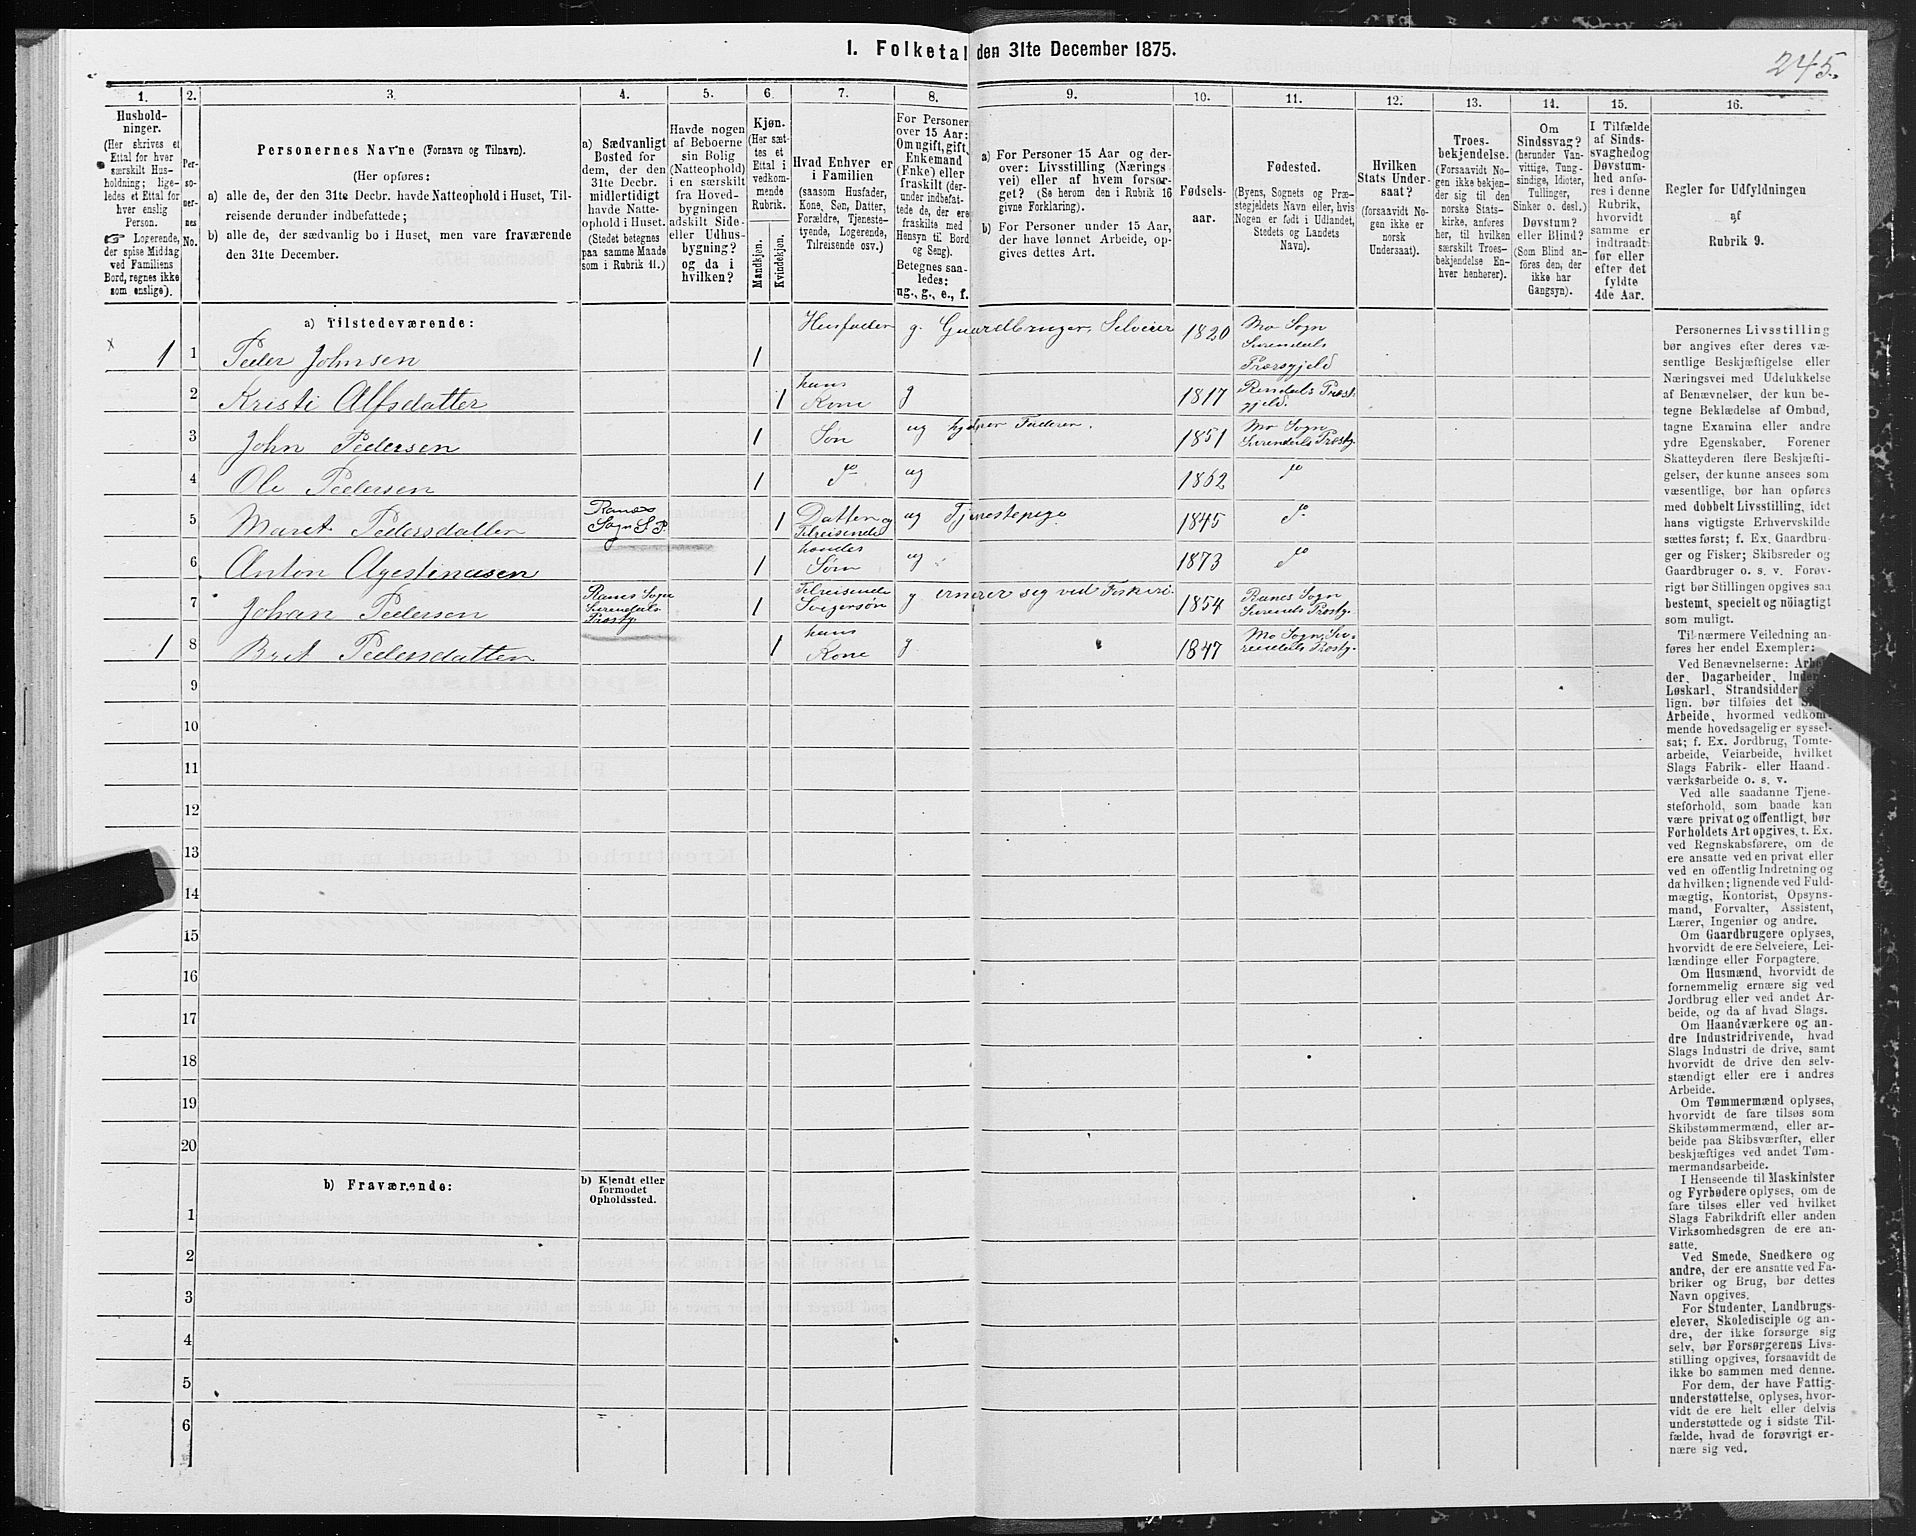 1. Folketal den 31te December 1875.
245.
1. 2. 3. 4. 5. 6. 7. 8. 9. 10. 11. 12. 13. 14. 15. 16.
Hushold-
ninger.
(Her skrives et
Ettal for hver
særskilt Hus-
holdning; lige-
ledes et Ettal for
hver enslig
Person.
☞ Logerende,
der spise Middag
ved Familiens
Bord, regnes ikke
som enslige).
Per-
so-
ner-
nes
No.
Personernes Navne (Fornavn og Tilnavn).
(Her opføres:
a) alle de, der den 31te Decbr. havde Natteophold i Huset, Til-
reisende derunder indbefattede;
b) alle de, der sædvanlig bo i Huset, men vare fraværende
den 31te December.
a) Sædvanligt
Bosted for
dem, der den
31te Decbr.
midlertidigt
havde Natte-
ophold i Huset.
(Stedet betegnes
paa samme Maade
som i Rubrik 11.)
Havde nogen
af Beboerne
sin Bolig
(Natteophold)
i en særskilt
fra Hoved-
bygningen
adskilt Side-
eller Udhus-
bygning?
og da i
hvilken?
Kjøn.
(Her sæt-
tes et
Ettal i
vedkom-
mende
Rubrik.
Mandkjøn.
Kvindekjøn.
Hvad Enhver er
i Familien
(saasom Husfader,
Kone, Søn, Datter,
Forældre, Tjeneste-
tyende, Logerende,
Tilreisende osv.)
For Personer
over 15 Aar:
Om ugift, gift,
Enkemand
(Enke) eller
fraskilt (der-
under indbefat-
tede de, der ere
fraskilte med
Hensyn til Bord
og Seng).
Betegnes saa-
ledes:
ug., g., e., f.
a) For Personer 15 Aar og der-
over: Livsstilling (Nærings
vei) eller af hvem forsør-
get? (Se herom den i Rubrik 16
givne Forklaring).
b) For Personer under 15 Aar,
der have lønnet Arbeide, op-
gives dettes Art.
Fødsels-
aar.
Fødested.
(Byens, Sognets og Præ-
stegjeldets Navn eller, hvis
Nogen er født i Udlandet,
Stedets og Landets
Navn).
Hvilken
Stats Under-
saat?
(forsaavidt No-
gen ikke er
norsk
Undersaat).
Troes-
bekjendelse.
(Forsaavidt No-
gen ikke bekjen-
der sig til den
norske Stats-
kirke, anføres
her, til hvilken
særskilt Troes-
bekjendelse En-
hver henhører).
Om
Sindssvag?
(herunder Van-
vittige, Tung-
sindige, Idioter,
Tullinger,
Sinker o. desl.)
Døvstum?
eller Blind?
(Som Blind an-
føres den, der
ikke har
Gangsyn).
I Tilfælde
af Sinds-
svaghed og
Døvstum-
hed anfø-
res i denne
Rubrik,
hvorvidt
samme er
indtraadt
før eller
efter det
fyldte
4de Aar.
Regler for Udfyldningen
af
Rubrik 9.
a) Tilstedeværende:
1 1 Peder Johnsen 1 Husfader g. Gaardbruger, Selveier 1820 Mo Sogn
Surendals
Præsgjeld
2 Kristi Alfsdatter 1 hans
Kone g 1817 Rindals Præst
gjeld.
3 John Pedersen 1 Søn ug hjelper Faderen. 1851 Mo Sogn
Surendals Præstg.
4 Ole Pedersen 1 do ug 1862 do
5 Maret Pedersdatter Ranes
Sogn S. P. 1 Datter og
Tilreisende ug Tjenestepige 1845 do
6 Anton Agestinusen 1 hendes
Søn ug 1873 do
7 Johan Pedersen Ranes Sogn
Surendals
Præstg. 1 Tilreisende
Svigersøn g ernærer sig ved Fiskeri. 1854 Ranes Sogn
Surendls Præstg.
1 8 Brit Pedersdatter 1 hans
Kone g 1847 Mo Sogn, Su-
rendals Præstg.
9
10
11
12
13
14
15
16
17
18
19
20
b) Fraværende:
b) Kjendt eller
formodet
Opholdssted.
1
2
3
4
5
6
Personernes Livsstilling
bør angives efter deres væ-
sentlige Beskjæftigelse eller
Næringsvei med Udelukkelse
af Benævnelser, der kun be-
tegne Beklædelse af Ombud,
tagne Examina eller andre
ydre Egenskaber. Forener
Skatteyderen flere Beskjæfti-
gelser, der kunne ansees som
væsentlige, bør han opføres
med dobbelt Livsstilling, idet
hans vigtigste Erhvervskilde
sættes først; f. Ex. Gaardbru-
ger og Fisker; Skibsreder og
Gaardbruger o. s. v. Forøv-
rigt bør Stillingen opgives saa
bestemt, specielt og nøiagtigt
som muligt.
Til nærmere Veiledning an-
føres her endel Exempler:
Ved Benævnelserne: Arbei-
der, Dagarbeider, Inder
Løskarl, Strandsidder
lign. bør tilføies det
Arbeide, hvormed vedkom-
mende hovedsagelig er syssel-
sat; f. Ex. Jordbrug, Tomte-
arbeide, Veiarbeide, hvilket
Slags Fabrik- eller Haand-
værksarbeide o. s. v.
Ved alle saadanne Tjene-
steforhold, som baade kan
være privat og offentligt, bør
Forholdets Art opgives, t. Ex.
ved Regnskabsførere, om de
ere ansatte ved en privat eller
ved en offentlig Indretning og
da hvilken; lignende ved Fuld-
mægtig, Kontorist, Opsyns-
mand, Forvalter, Assistent,
Lærer, Ingeniør og andre.
Om Gaardbrugere oplyses,
hvorvidt de ere Selveiere, Lei-
lændinge eller Forpagtere.
Om Husmænd, hvorvidt de
fornemmelig ernære sig ved
Jordbrug eller ved andet Ar-
beide, og da af hvad Slags.
Om Haandværkere og an-
dre Industridrivende, hvad
Slags Industri de drive, samt
hvorvidt de drive den selv-
stændigt eller ere i andres
Arbeide.
Om Tømmermænd oplyses,
hvorvidt de fare tilsøs som
Skibstømmermænd, eller ar-
beide paa Skibsværfter, eller
beskjæftiges ved andet Tøm-
mermandsarbeide.
I Henseende til Maskinister
og Fyrbødere oplyses, om de
fare tilsøs eller ved hvilket
Slags Fabrikdrift eller anden
Virksomhedsgren de ere an-
satte.
Ved Smede, Snedkere og
andre, der ere ansatte ved Fa-
briker og Brug, bør dettes
Navn opgives.
For Studenter, Landbrugs-
elever, Skoledisciple og an-
dre, der ikke forsørge sig
selv, bør Forsørgerens Livs-
stilling opgives, forsaavidt de
ikke bo sammen med denne.
For dem, der have Fattig-
understøttelse, oplyses, hvor-
vidt de ere helt eller delvis
understøttede og i sidste Til-
fælde, hvad de forøvrigt er-
nære sig ved.